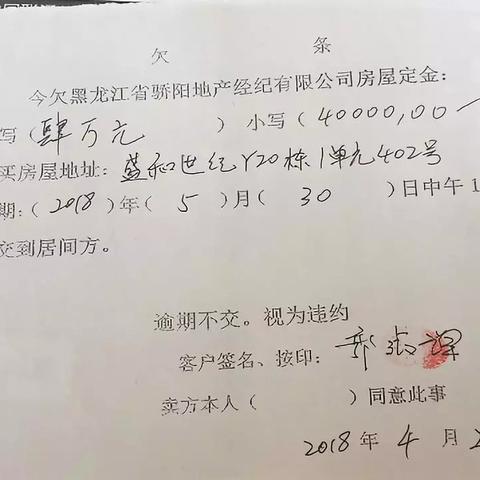 欠 条
今欠黑龙江省骄阳地产经纪有限公司房屋定金：
写（肆万元 ）小写（40000,00
买房屋地址：盛和世纪Y20栋1单元402号
期：（2018）年（5）月（30 ）日中午1
交到居间方。
逾期不交。视为违约
客户签名、按印：
卖方本人（ ）同意此事
2018年4月2